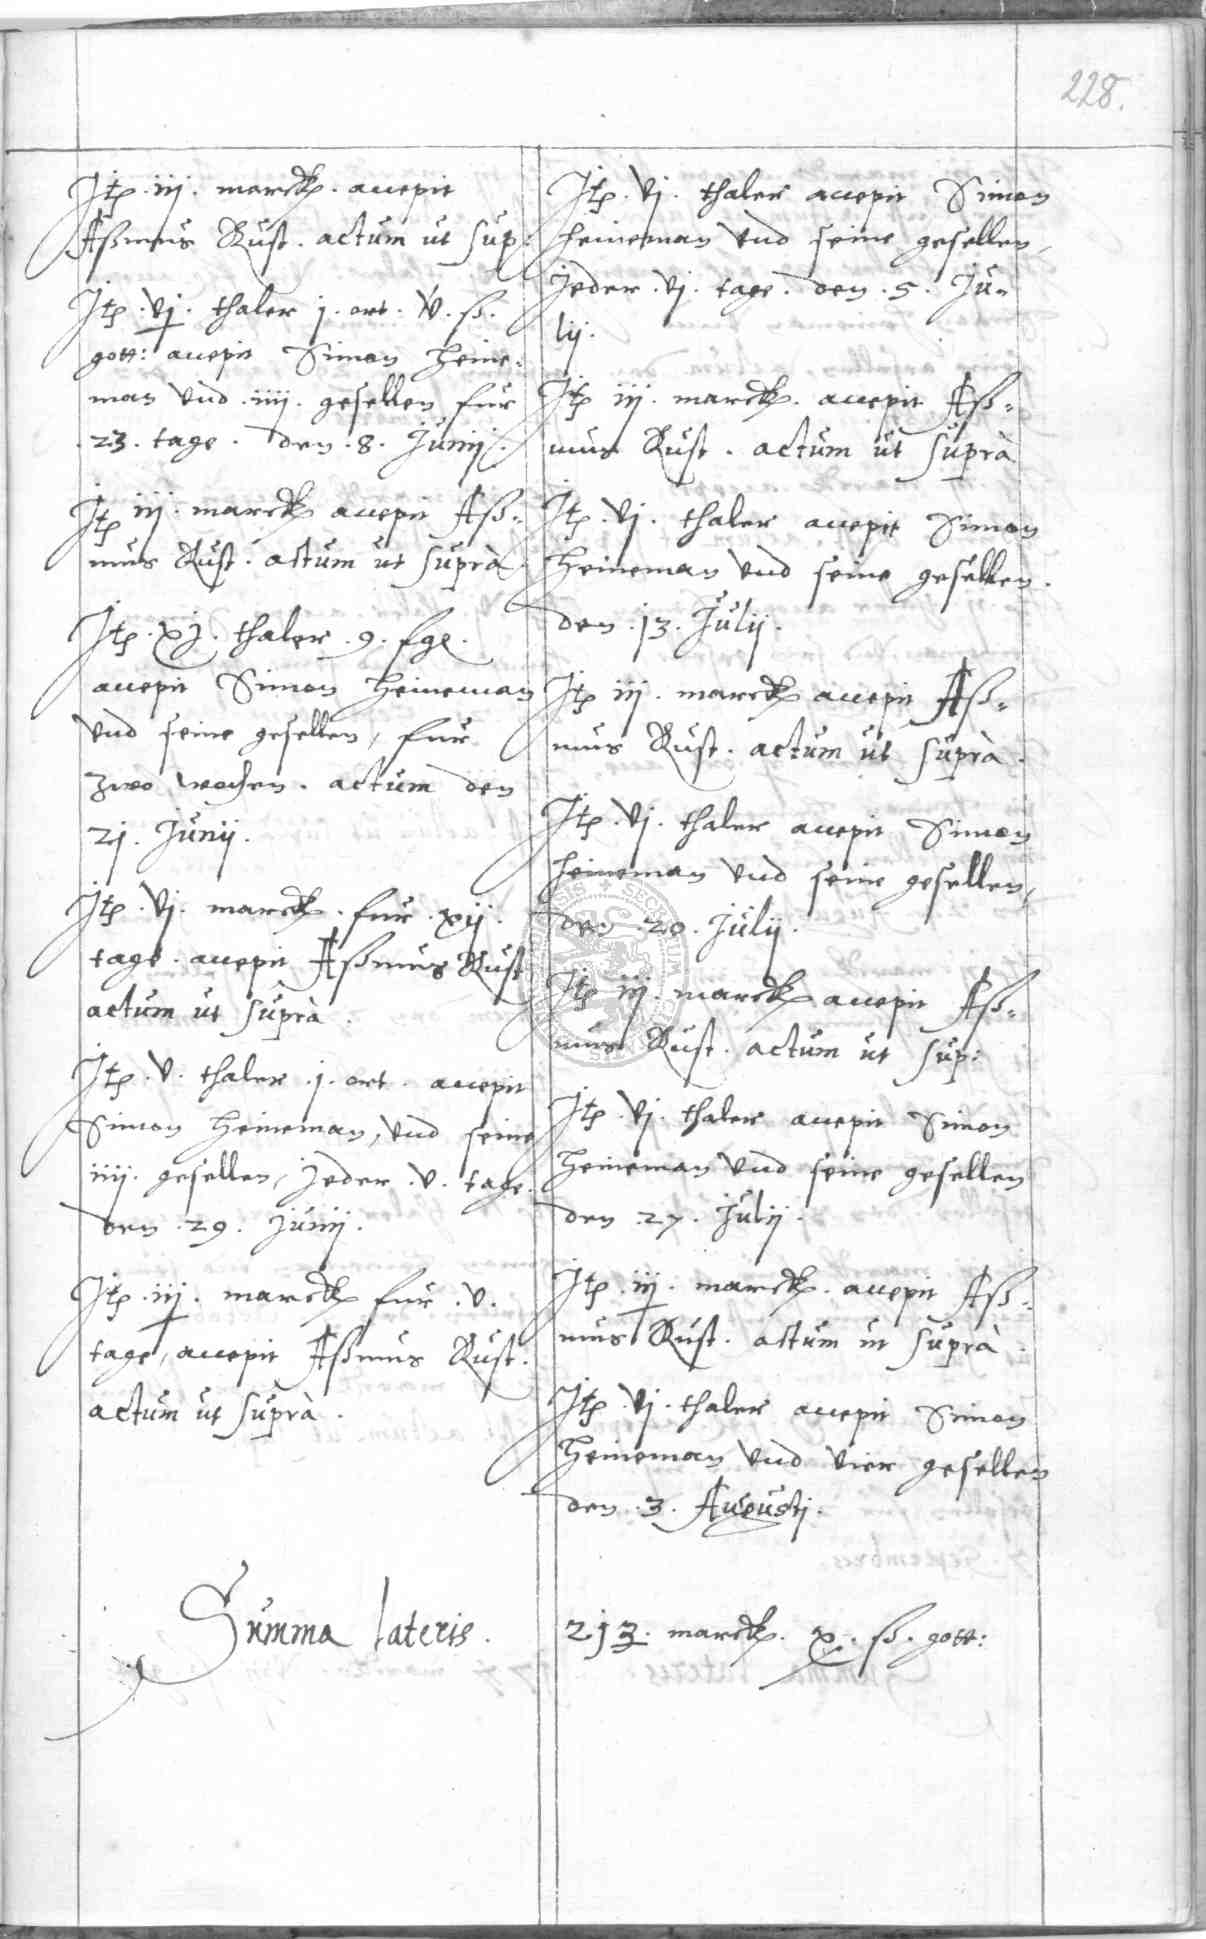 228.
Itp. iij. marck. accepit
Aßmus Rust. actum ut sup:
Itp. vj. thaler j. ort. v. ß.
gott: accepit Simon Heine:
man vnd .iiij. gesellen fur
.23. tage. den .8. Junij.
Itp iij. marck accepit Aß=
mus Rust. actum ut suprà
Itp. xj. thaler .9. fgl.
accepit Simon Heineman
vnd seine gesellen, fur
zwo wochen. actum den
2j. Junij.
Itp. vj. marck. fur .xij.
tage. accepit Aßmus Rust
actum ut suprà.
Itp. v. thaler .j. ort. accepit
Simon Heineman, vnd seine
iiij. gesellen, jeder .v. tage.
den .29. Junij.
Itp. iij. marck fur .v.
tage, accepit Aßmus Rust.
actum ut suprà.
Itp. vj. thaler accepit Simon
Heineman vnd seine gesellen,
jeder .vj. tage. den .5. Ju=
lij.
Itp iij. marck. accepit Aß=
mus Rust. actum ut suprà
Itp. vj. thaler accepit Simon
Heineman vnd seine gesellen.
den .j3. Julij.
Itp iij. marck accepit Aß=
mus Rust. actum ut suprà.
Itp. vj. thaler accepit Simon
Heineman vnd seine gesellen,
den .20. Julij.
Itp iij. marck accepit Aß=
mus Rust. actum ut sup:
Itp. vj. thaler accepit Simon
Heineman vnd seine gesellen
den .27. Julij.
Itp. iij. marck. accepit Aß=
mus Rust. actum ut suprà.
Itp. vj. thaler accepit Simon
Heineman vnd vier gesellen
den .3. Augustj.
Summa lateris. 2j3. marck. x. ß. gott: